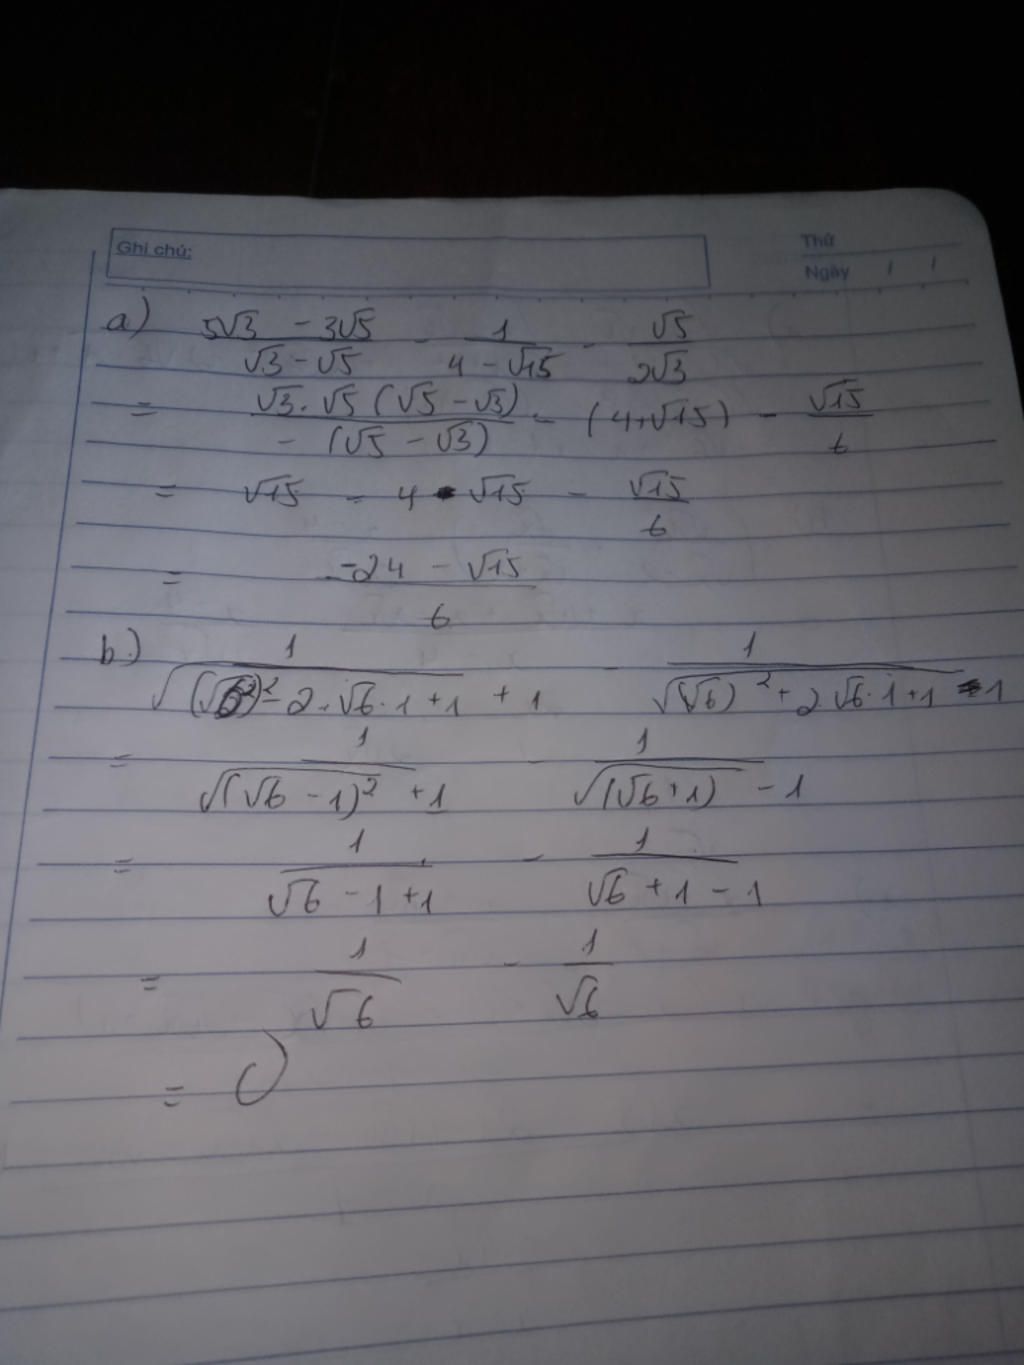 Ghi chú:
Thứ
Ngày / /
a) (5√3 − 3√5)/(√3 − √5) − 1/(4 − √15) − √5/(2√3)
= (√3 . √5 (√5 − √3))/(− (√5 − √3)) − (4+√15) − √15/6
= √15 − 4 - √15 − √15/6
= (−24 − √15)/6
b.) 1/(√((√6)² − 2.√6.1 + 1) + 1) − 1/(√((√6)² + 2.√6.1 + 1) - 1)
= 1/(√((√6 − 1)²) + 1) − 1/(√((√6 + 1)) − 1)
= 1/(√6 − 1 + 1) − 1/(√6 + 1 − 1)
= 1/√6 − 1/√6
= 0